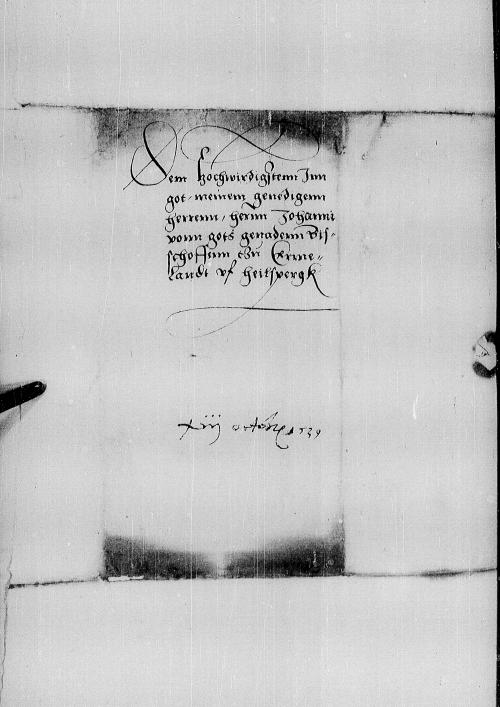 Dem Hochwirdigstenn Inn
got meinem genedigenn
herrenn, hernn Johanni
vonn gots genadenn Bis-
schoffenn czu Erme-
landt vf heilspergk
xiij octobris 1539